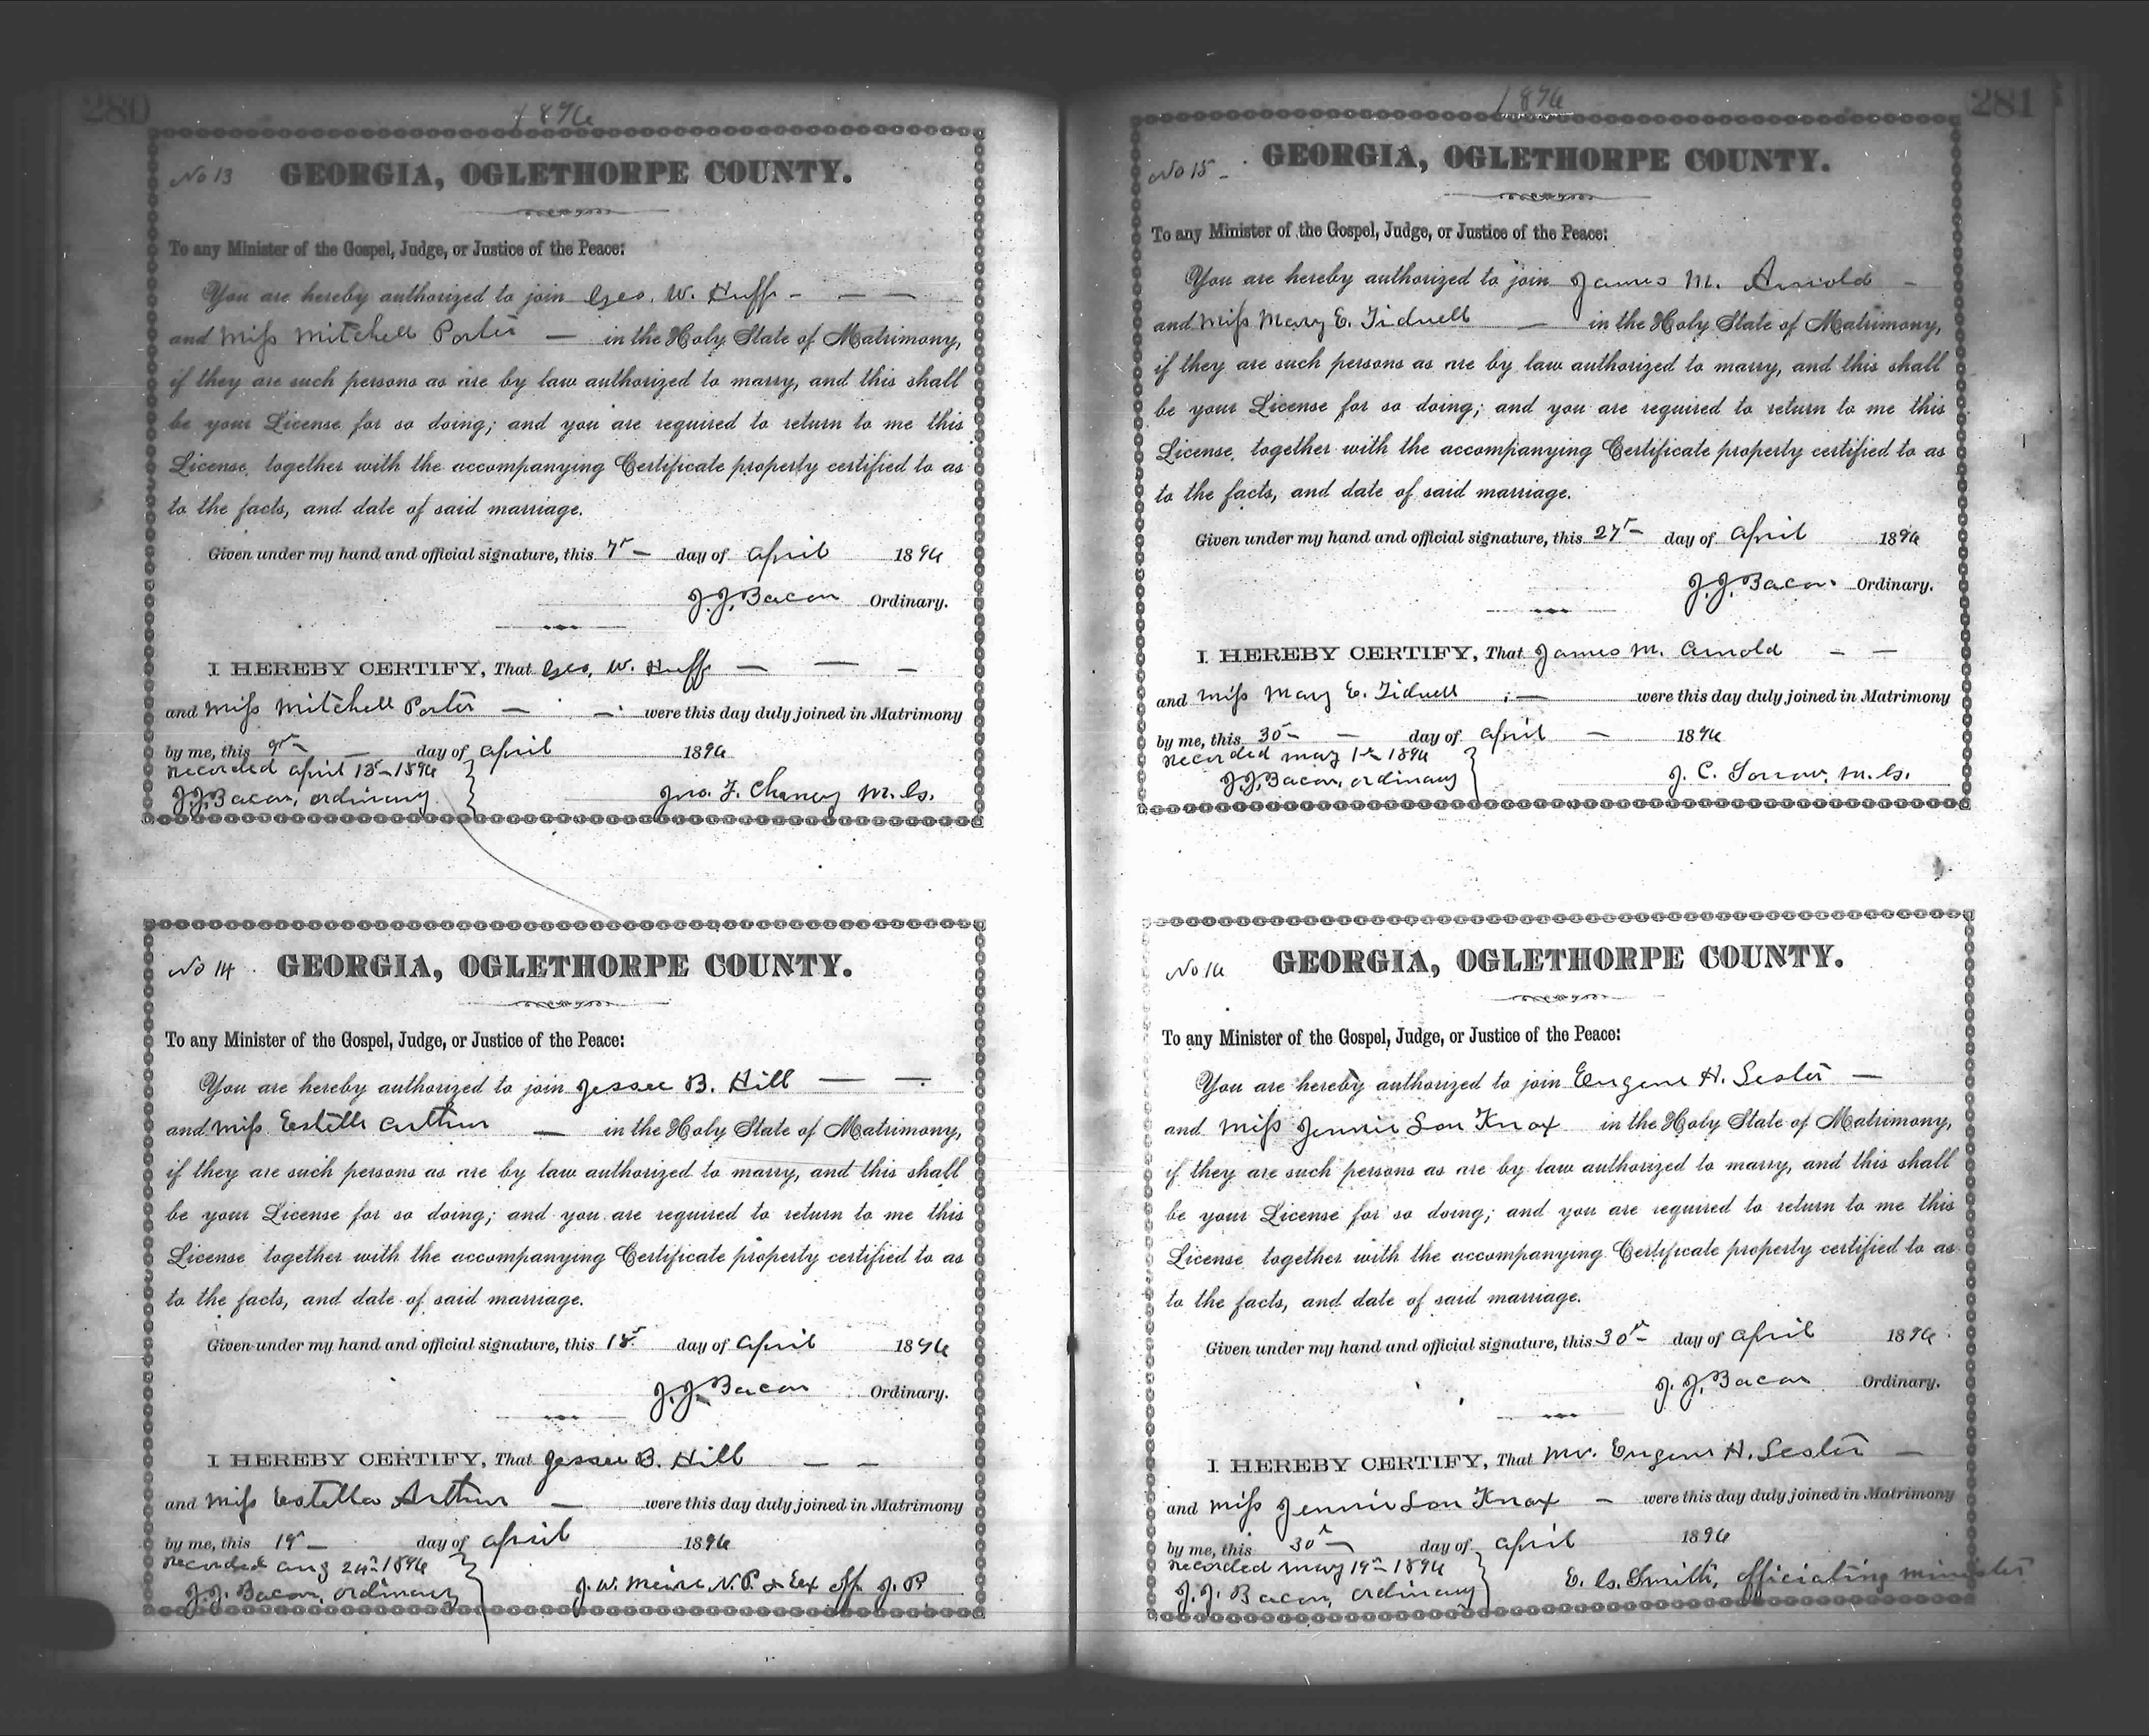 280
1896
No 13 GEORGIA, OGLETHORPE COUNTY.
To any Minister of the Gospel, Judge, or Justice of the Peace:
You are hereby authorized to join Geo. W. Huff - — —
and Miss Mitchell Porter — in the Holy State of Matrimony,
if they are such persons as are by law authorized to marry, and this shall
be your License for so doing; and you are required to return to me this
License, together with the accompanying Certificate property certified to as
to the facts, and date of said marriage.
Given under my hand and official signature, this 7th day of April 1896
J.J. Bacon Ordinary.
I HEREBY CERTIFY, That Geo. W. Huff — — —
and Miss Mitchell Porter — — were this day duly joined in Matrimony
by me, this 9th — day of April 1896
Recorded April 13th 1896
J.J. Bacon, ordinary
Jno. F. Chaney M.G.
No 14 GEORGIA, OGLETHORPE COUNTY.
To any Minister of the Gospel, Judge, or Justice of the Peace:
You are hereby authorized to join Jessee B. Hill — —
and Miss Estelle Arthur — in the Holy State of Matrimony,
if they are such persons as are by law authorized to marry, and this shall
be your License for so doing; and you are required to return to me this
License together with the accompanying Certificate property certified to as
to the facts, and date of said marriage.
Given under my hand and official signature, this 18th day of April 1896
J.J. Bacon Ordinary.
I HEREBY CERTIFY, That Jessee B. Hill — —
and Miss Estella Arthur — were this day duly joined in Matrimony
by me, this 19th day of April 1896
Recorded Aug 24th 1896
J.J. Bacon, ordinary
J. W. N.P. & Ex off J.P
281
1896
No 15 - GEORGIA, OGLETHORPE COUNTY.
To any Minister of the Gospel, Judge, or Justice of the Peace:
You are hereby authorized to join James M. Arnold -
and Miss Mary E. Tidwell — in the Holy State of Matrimony,
if they are such persons as are by law authorized to marry, and this shall
be your License for so doing; and you are required to return to me this
License, together with the accompanying Certificate property certified to as
to the facts, and date of said marriage.
Given under my hand and official signature, this 27th day of April 1896
J.J. Bacon Ordinary.
I HEREBY CERTIFY, That James M. Arnold - —
and Miss Mary E. Tidwell — were this day duly joined in Matrimony
by me, this 30th — day of April — 1896
Recorded May 1st 1896
J.J. Bacon, ordinary
J. C. Sorrow, M.G.
No 16 GEORGIA, OGLETHORPE COUNTY.
To any Minister of the Gospel, Judge, or Justice of the Peace:
You are hereby authorized to join Eugene H. Lester —
and Miss Jennie Lou Knox in the Holy State of Matrimony,
if they are such persons as are by law authorized to marry, and this shall
be your License for so doing; and you are required to return to me this
License, together with the accompanying Certificate property certified to as
to the facts, and date of said marriage.
Given under my hand and official signature, this 30th day of April 1896
J.J. Bacon Ordinary.
I HEREBY CERTIFY, That Mr. Eugene H. Lester —
and Miss Jennie Lou Knox — were this day duly joined in Matrimony
by me, this 30th day of April 1896
Recorded May 19th 1896
J.J. Bacon, ordinary
E. G. Smith, officiating minister